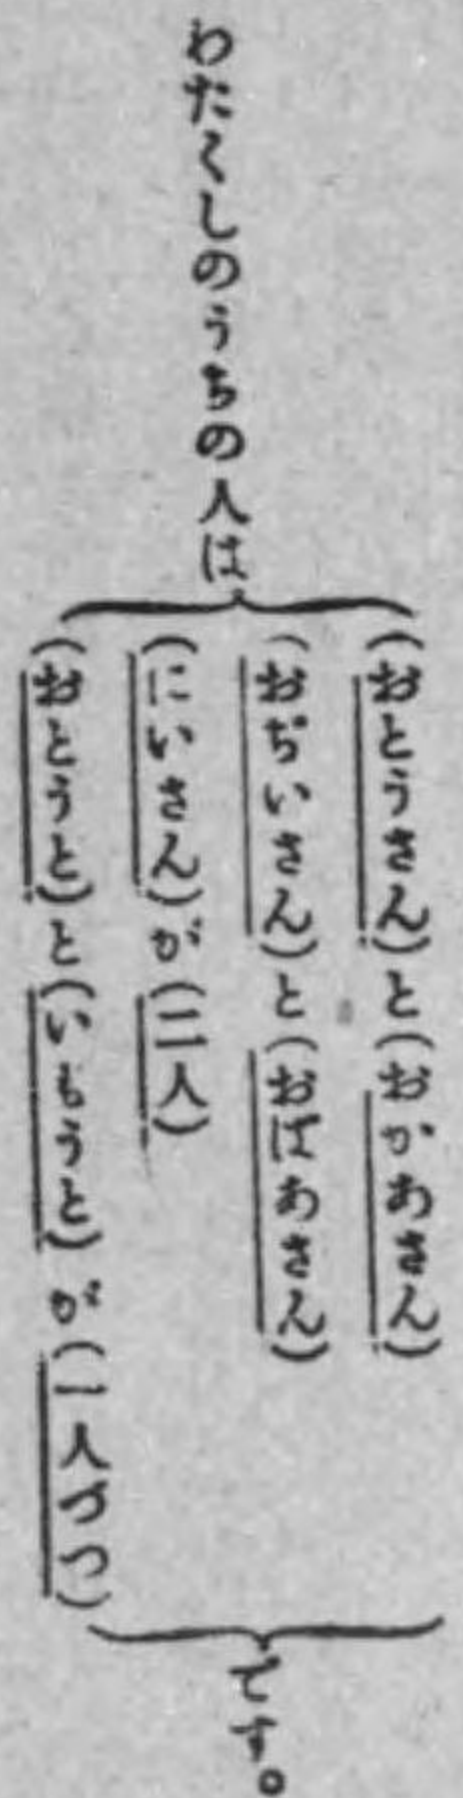 わたくしのうちの人は
(おとうさん)と(おかあさん)
(おぢいさん)と(おばあさん)
(にいさん)が(二人)
(おとうと)と(いもうと)が(一人づつ)
です。